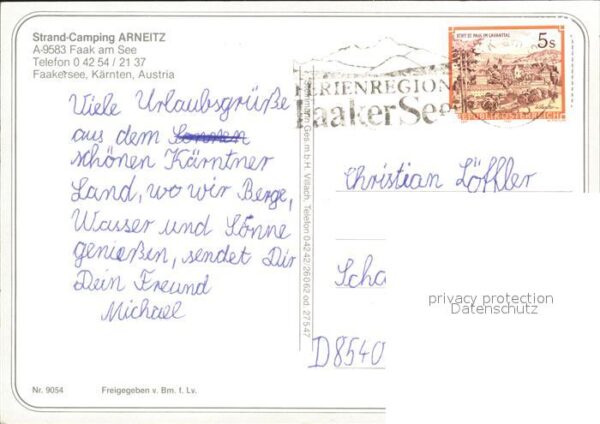 Strand-Camping ARNEITZ
A-9583 Faak am See
Telefon 0 42 54 / 21 37
Faakersee, Kärnten, Austria
Viele Urlaubsgrüße
aus dem Sonnen
schönen Kärntner
Land, wo wir Berge,
Wasser und Sonne
genießen, sendet Dir
Dein Freund
Michael
Nr. 9054
Freigegeben v. Bm. f. Lv.
Ges. m. b. H. Villach, Telefon 0 42 42 / 26 0 62 od. 27 5 47
FERIENREGION
Faaker See
STIFT ST. PAUL IM LAVANTTAL
5 S
REPUBLIK ÖSTERREICH
Christian Löffler
Scha
D8540
privacy protection
Datenschutz